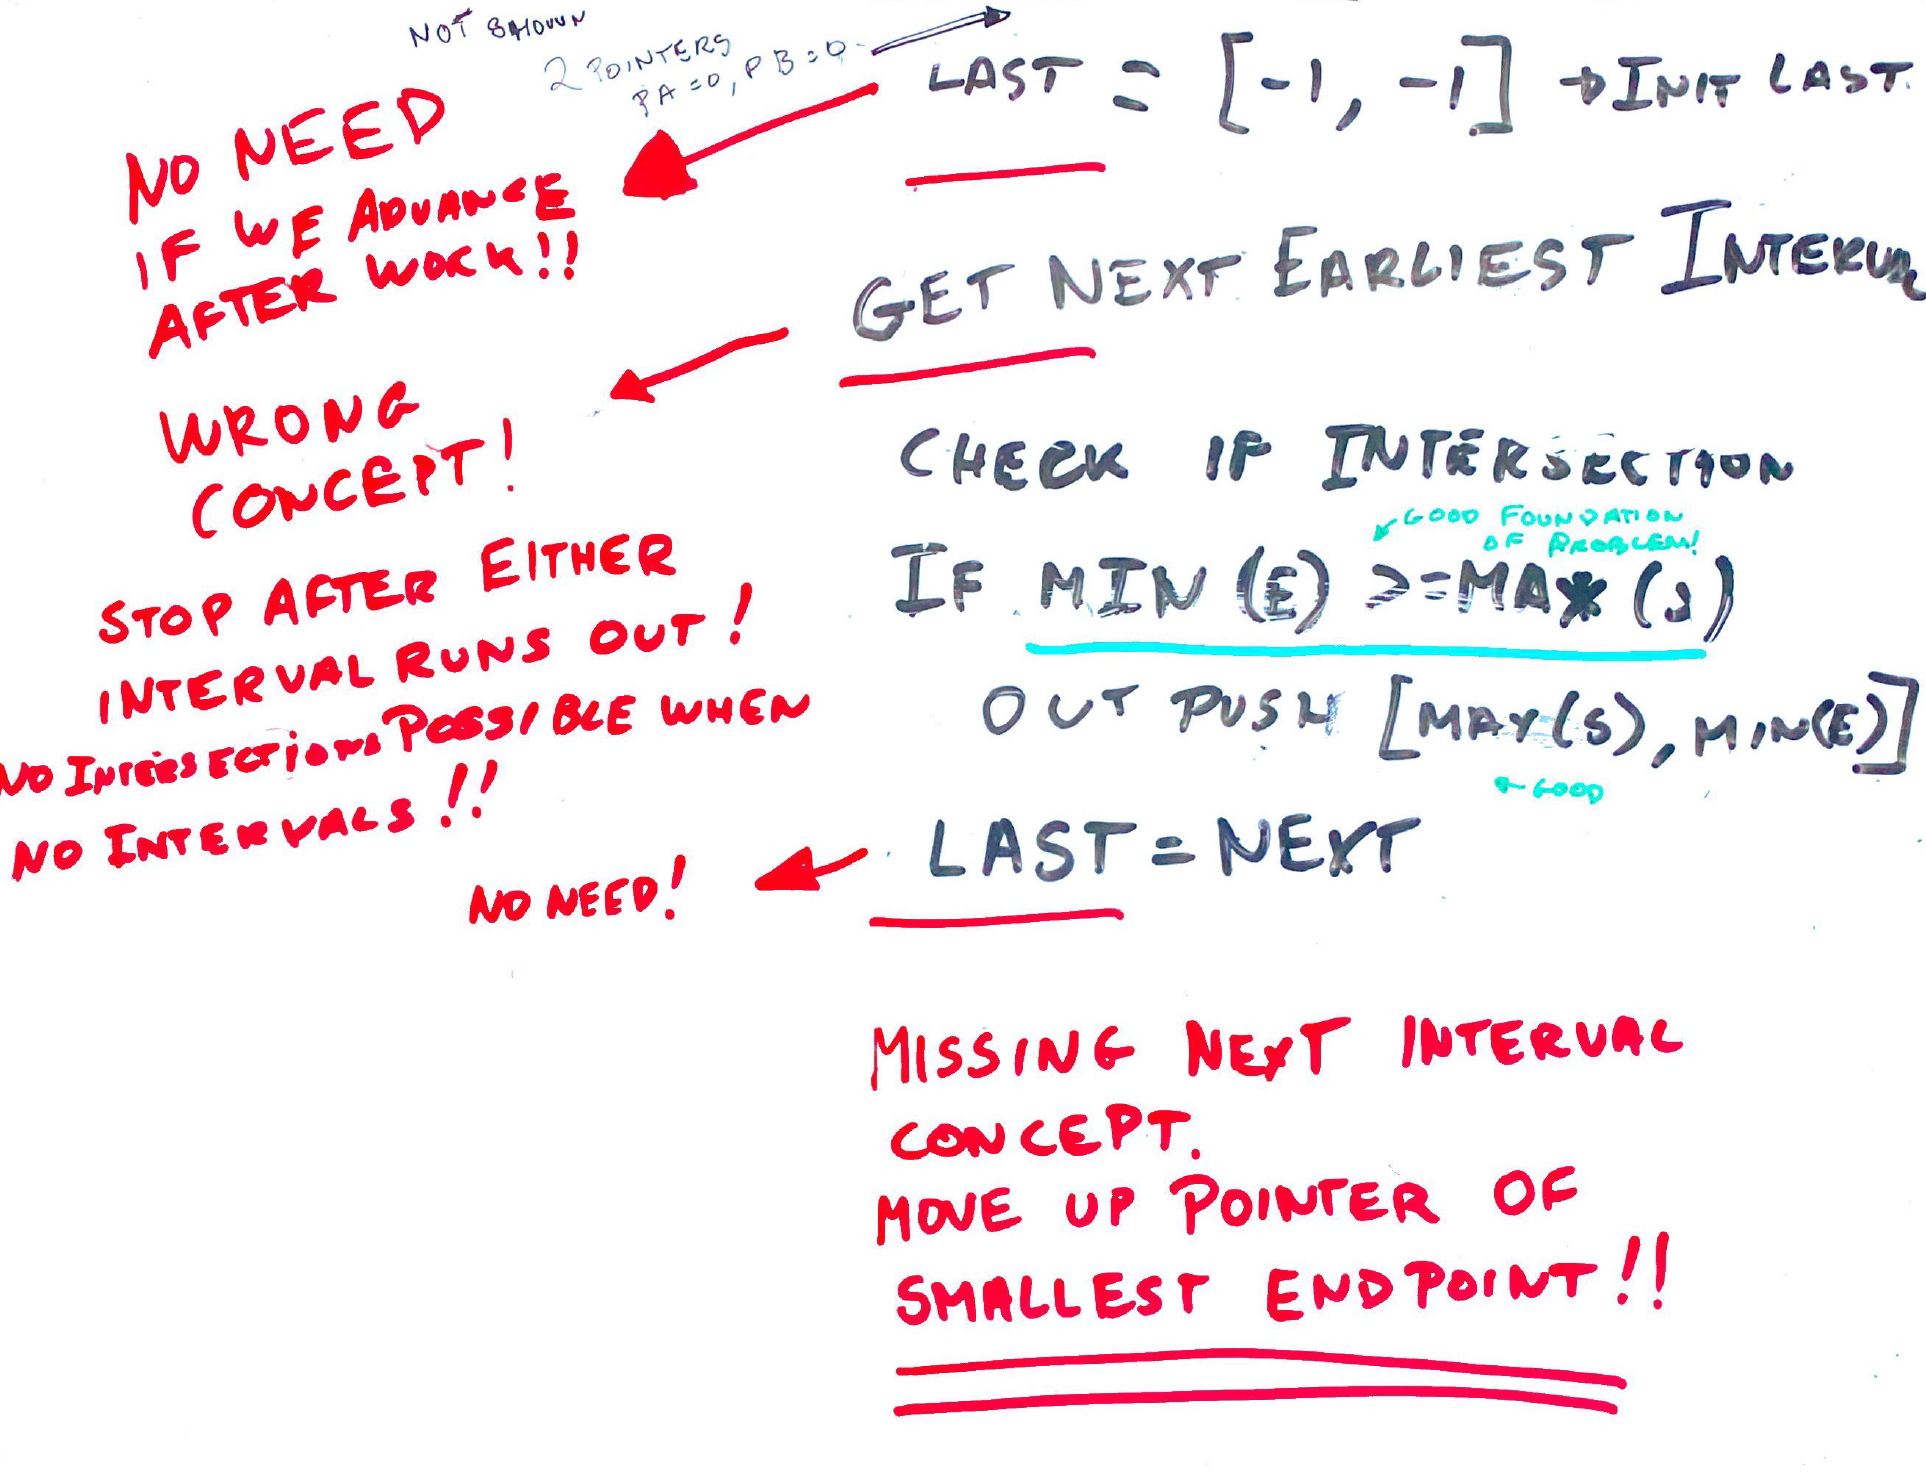 NOT SHOWN
2 POINTERS
PA=0, PB=0
LAST = [-1, -1] → INIT LAST.
NO NEED
IF WE ADVANCE
AFTER WORK!!
GET NEXT EARLIEST INTERVAL
WRONG
CONCEPT!
STOP AFTER EITHER
INTERVAL RUNS OUT!
NO INTERSECTIONS POSSIBLE WHEN
NO INTERVALS!!
CHECK IF INTERSECTION
GOOD FOUNDATION
OF PROBLEM!
IF MIN (E) >= MAX (S)
OUT PUSH [MAX(S), MIN(E)]
← GOOD
LAST = NEXT
NO NEED!
MISSING NEXT INTERVAL
CONCEPT.
MOVE UP POINTER OF
SMALLEST ENDPOINT!!